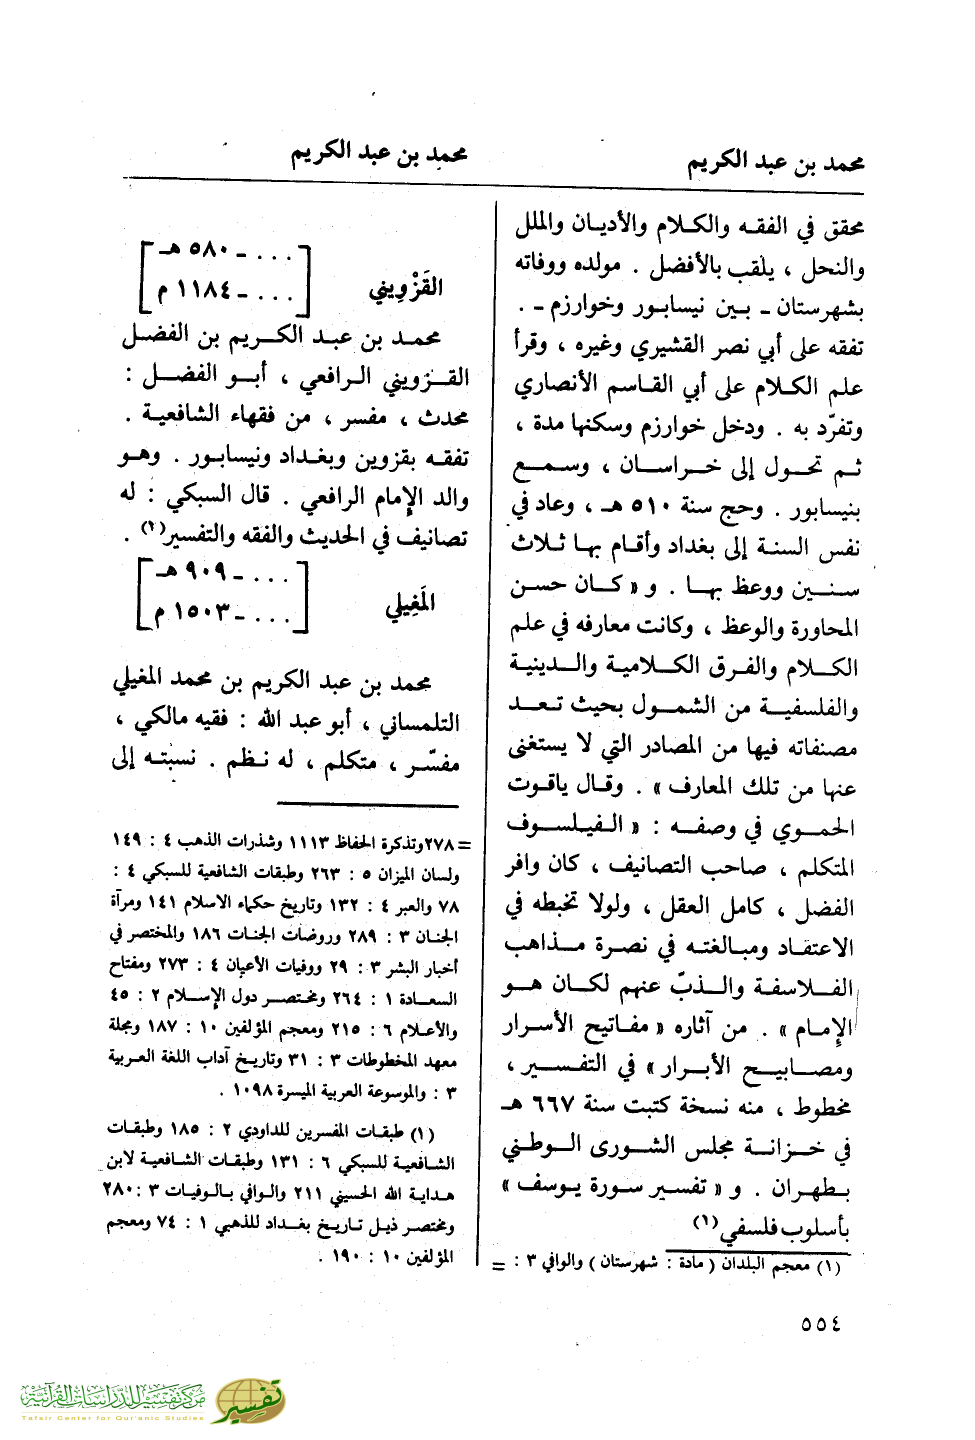 محمد بن عبد الكريم
محمد بن عبد الكريم
محقق في الفقه والكلام والأديان والملل
والنحل ، يلقب بالأفضل . مولده ووفاته
بشهرستان ـ بين نيسابور وخوارزم ـ .
تفقه على أبي نصر القشيري وغيره ، وقرأ
علم الكلام على أبي القاسم الأنصاري
وتفرّد به . ودخل خوارزم وسكنها مدة ،
ثم تحول إلى خراسان ، وسمع
بنيسابور . وحج سنة ٥١٠ هـ ، وعاد في
نفس السنة إلى بغداد وأقام بها ثلاث
سنين ووعظ بها . و « كان حسن
المحاورة والوعظ ، وكانت معارفه في علم
الكلام والفرق الكلامية والدينية
والفلسفية من الشمول بحيث تعد
مصنفاته فيها من المصادر التي لا يستغنى
عنها من تلك المعارف » . وقال ياقوت
الحموي في وصفه : « الفيلسوف
المتكلم ، صاحب التصانيف ، كان وافر
الفضل ، كامل العقل ، ولولا تخبطه في
الاعتقاد ومبالغته في نصرة مذاهب
الفلاسفة والذبّ عنهم لكان هو
الإمام » . من آثاره « مفاتيح الأسرار
ومصابيح الأبرار » في التفسير ،
مخطوط ، منه نسخة كتبت سنة ٦٦٧ هـ
في خزانة مجلس الشورى الوطني
بطهران . و « تفسير سورة يوسف »
بأسلوب فلسفي (١)
(١) معجم البلدان ( مادة : شهرستان ) والوافي ٣ : =
القَزْويني
[ . . . ـ ٥٨٠ هـ ]
[ . . . ـ ١١٨٤ م ]
محمد بن عبد الكريم بن الفضل
القزويني الرافعي ، أبو الفضل :
محدث ، مفسر ، من فقهاء الشافعية .
تفقه بقزوين وبغداد ونيسابور . وهو
والد الإمام الرافعي . قال السبكي : له
تصانيف في الحديث والفقه والتفسير (١) .
المَغيلي
[ . . . ـ ٩٠٩ هـ ]
[ . . . ـ ١٥٠٣ م ]
محمد بن عبد الكريم بن محمد المغيلي
التلمساني ، أبو عبد الله : فقيه مالكي ،
مفسّر ، متكلم ، له نظم . نسبته إلى
= ٢٧٨ وتذكرة الحفاظ ١١١٣ وشذرات الذهب ٤ : ١٤٩
ولسان الميزان ٥ : ٢٦٣ وطبقات الشافعية للسبكي ٤ :
٧٨ والعبر ٤ : ١٣٢ وتاريخ حكماء الاسلام ١٤١ ومرآة
الجنان ٣ : ٢٨٩ وروضات الجنات ١٨٦ والمختصر في
أخبار البشر ٣ : ٢٩ ووفيات الأعيان ٤ : ٢٧٣ ومفتاح
السعادة ١ : ٢٦٤ ومختصر دول الإسلام ٢ : ٤٥
والأعلام ٦ : ٢١٥ ومعجم المؤلفين ١٠ : ١٨٧ ومجلة
معهد المخطوطات ٣ : ٣١ وتاريخ آداب اللغة العربية
٣ : والموسوعة العربية الميسرة ١٠٩٨ .
(١) طبقات المفسرين للداودي ٢ : ١٨٥ وطبقات
الشافعية للسبكي ٦ : ١٣١ وطبقات الشافعية لابن
هداية الله الحسيني ٢١١ والوافي بالوفيات ٣ : ٢٨٠
ومختصر ذيل تاريخ بغداد للذهبي ١ : ٧٤ ومعجم
المؤلفين ١٠ : ١٩٠ .
٥٥٤
مركز تفسير للدراسات القرآنية
Tafsir Center for Qur'anic Studies
تفسير